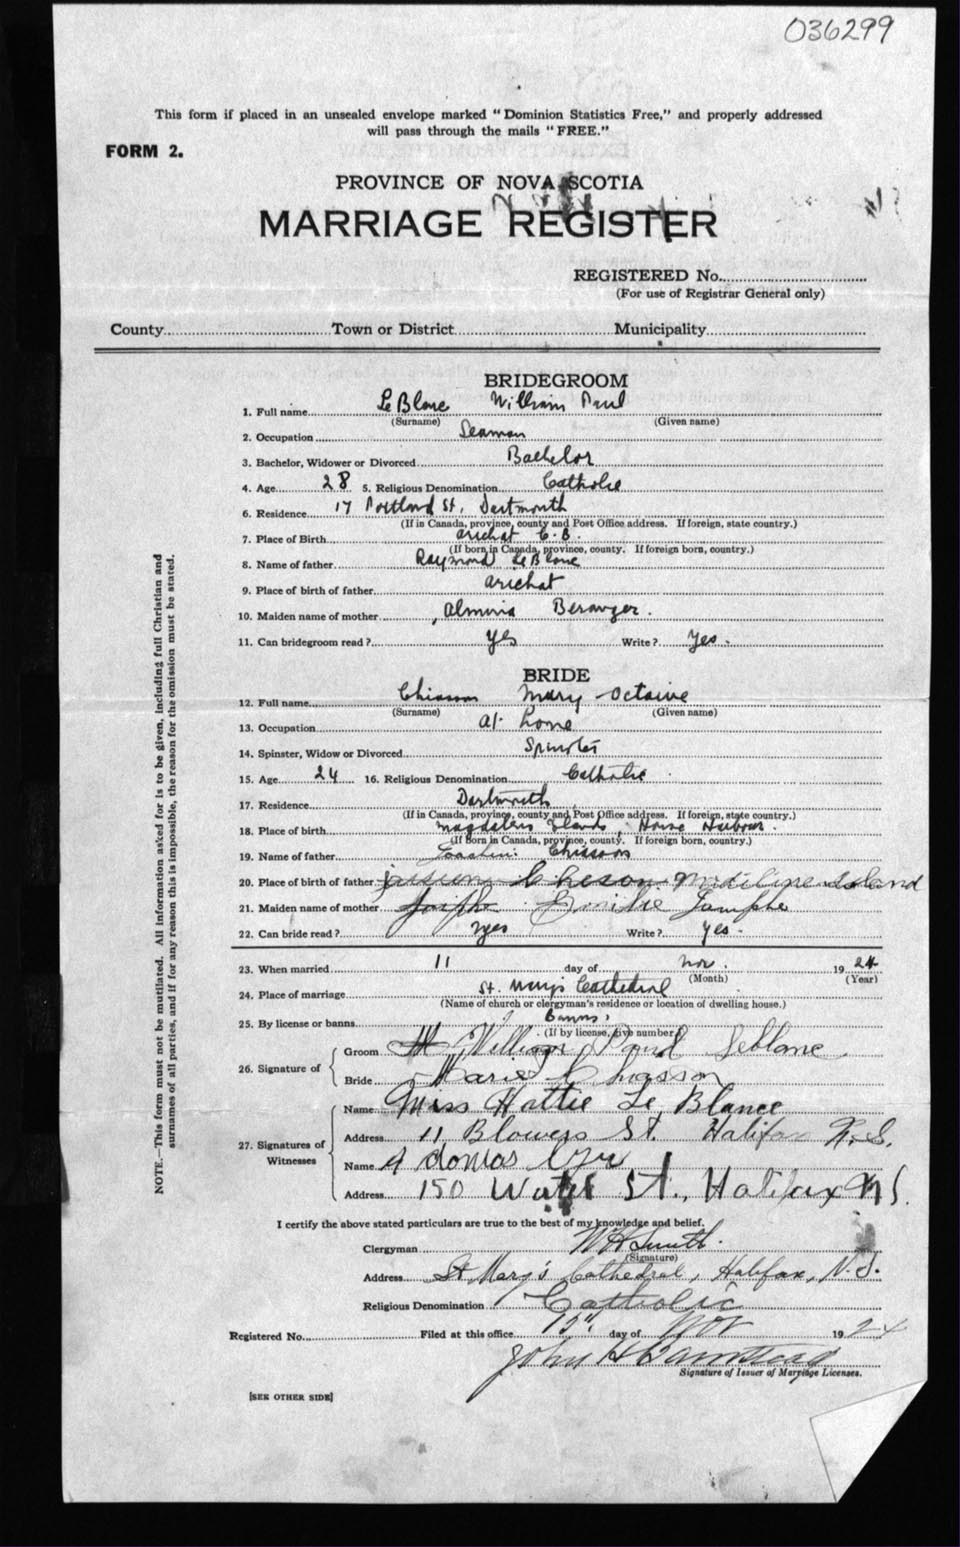 036299
This form if placed in an unsealed envelope marked "Dominion Statistics Free," and properly addressed
will pass through the mails "FREE."
FORM 2.
PROVINCE OF NOVA SCOTIA
MARRIAGE REGISTER
REGISTERED No.
(For use of Registrar General only)
County Town or District Municipality
BRIDEGROOM
1. Full name LeBlanc William Paul
(Surname) (Given name)
2. Occupation Seaman
3. Bachelor, Widower or Divorced Bachelor
4. Age 28 5. Religious Denomination Catholic
6. Residence 17 Portland St, Dartmouth
(If in Canada, province, county and Post Office address. If foreign, state country.)
7. Place of Birth Arichat C.B.
(If born in Canada, province, county. If foreign born, country.)
8. Name of father Raymond LeBlanc
9. Place of birth of father Arichat
10. Maiden name of mother Beranger.
11. Can bridegroom read? yes Write? Yes.
BRIDE
12. Full name Chiasson Mary Octavie
(Surname) (Given name)
13. Occupation At home
14. Spinster, Widow or Divorced Spinster
15. Age 24 16. Religious Denomination Catholic
17. Residence Dartmouth
(If in Canada, province, county and Post Office address. If foreign, state country.)
18. Place of birth Magdalen Islands, House Harbour.
(If Born in Canada, province, county. If foreign born, country.)
19. Name of father Chiasson
20. Place of birth of father Island
21. Maiden name of mother Emilie
22. Can bride read? yes Write? yes.
23. When married 11 day of Nov. 1924
(Month) (Year)
24. Place of marriage St. Mary's Cathedral
(Name of church or clergyman's residence or location of dwelling house.)
25. By license or banns Banns.
(If by license, give number.)
26. Signature of
Groom William Paul Leblanc
Bride Marie Chiasson
27. Signatures of Witnesses
Name Miss Hattie Le Blance
Address 11 Blowers St. Halifax N.S.
Name Adomas
Address 150 Water St., Halifax N S.
I certify the above stated particulars are true to the best of my knowledge and belief.
Clergyman W H Smith.
(Signature)
Address St Mary's Cathedral, Halifax, N.S.
Religious Denomination Catholic
Registered No. Filed at this office 12" day of Nov 1924
John H
Signature of Issuer of Marriage Licenses.
[SEE OTHER SIDE]
NOTE.—This form must not be mutilated. All information asked for is to be given, including full Christian and
surnames of all parties, and if for any reason this is impossible, the reason for the omission must be stated.